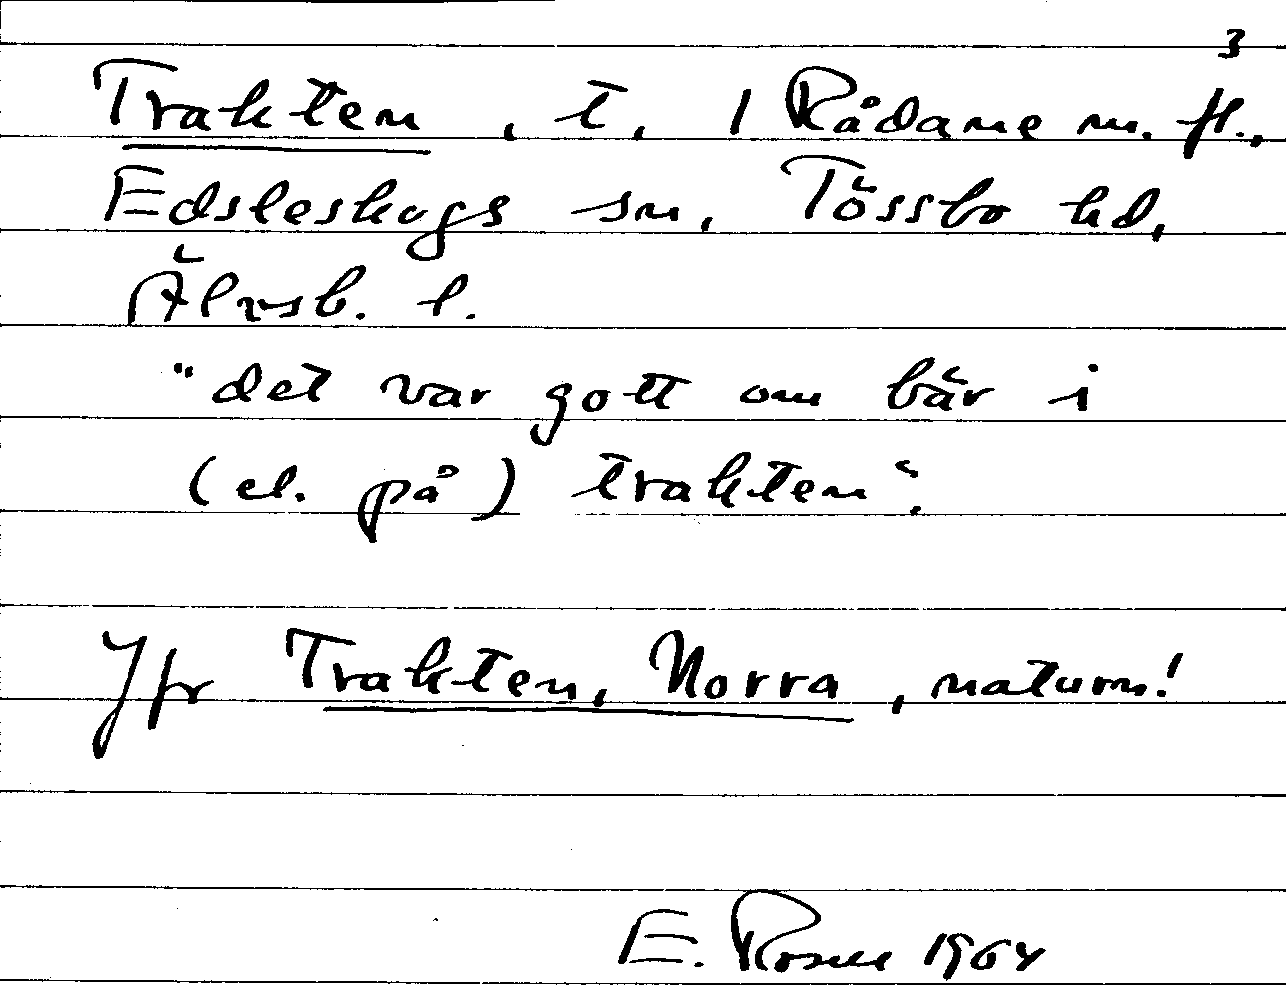 3
Trakten, t. 1 Rådane m. fl.,
Edsleskogs sn, Tössbo hd,
Älvsb. l.
"det var gott om bär i
(el. på) trakten".
Jfr Trakten, Norra, naturn!
E. Rosell 1964